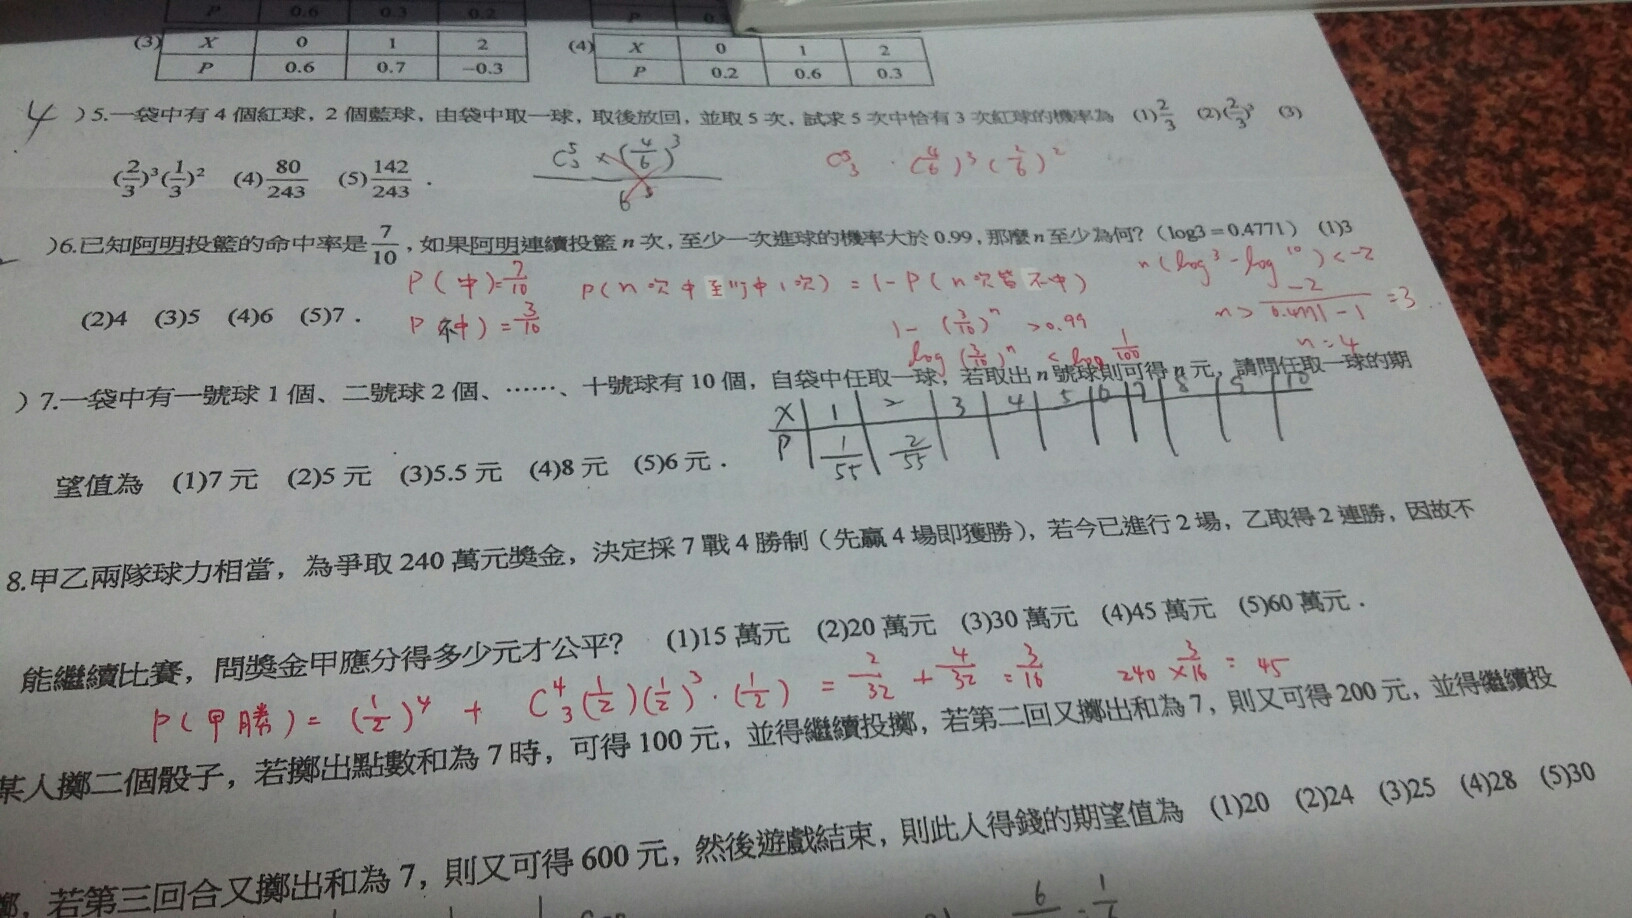 P 0.6 0.3 0.2 P
(3) X 0 1 2 (4) X 0 1 2
P 0.6 0.7 −0.3 P 0.2 0.6 0.3
4 )5.一袋中有 4 個紅球，2 個藍球，由袋中取一球，取後放回，並取 5 次，試求 5 次中恰有 3 次紅球的機率為 (1)2/3 (2)(2/3)³ (3)
(2/3)³(1/3)² (4)80/243 (5)142/243．
C⁵₃ × (4/6)³
6⁵
C⁵₃ · (4/6)³(2/6)²
)6.已知阿明投籃的命中率是 7/10，如果阿明連續投籃 n 次，至少一次進球的機率大於 0.99，那麼 n 至少為何？（log3＝0.4771） (1)3
(2)4 (3)5 (4)6 (5)7．
P(中)=7/10
P(不中)=3/10
P(n次中至少中1次) = 1-P(n次皆不中)
1-(3/10)ⁿ >0.99
log(3/10)ⁿ < log 1/100
n(log3-log10)<-2
n> -2/0.4771-1 =3...
n=4
)7.一袋中有一號球 1 個、二號球 2 個、……、十號球有 10 個，自袋中任取一球，若取出 n 號球則可得 n 元，請問任取一球的期
望值為 (1)7 元 (2)5 元 (3)5.5 元 (4)8 元 (5)6 元．
X 1 2 3 4 5 6 7 8 9 10
P 1/55 2/55
8.甲乙兩隊球力相當，為爭取 240 萬元獎金，決定採 7 戰 4 勝制（先贏 4 場即獲勝），若今已進行 2 場，乙取得 2 連勝，因故不
能繼續比賽，問獎金甲應分得多少元才公平？ (1)15 萬元 (2)20 萬元 (3)30 萬元 (4)45 萬元 (5)60 萬元．
P(甲勝)= (1/2)⁴ + C⁴₃(1/2)(1/2)³·(1/2) = 2/32 + 4/32 = 3/16 240×3/16 = 45
某人擲二個骰子，若擲出點數和為 7 時，可得 100 元，並得繼續投擲，若第二回又擲出和為 7，則又可得 200 元，並得繼續投
擲，若第三回合又擲出和為 7，則又可得 600 元，然後遊戲結束，則此人得錢的期望值為 (1)20 (2)24 (3)25 (4)28 (5)30